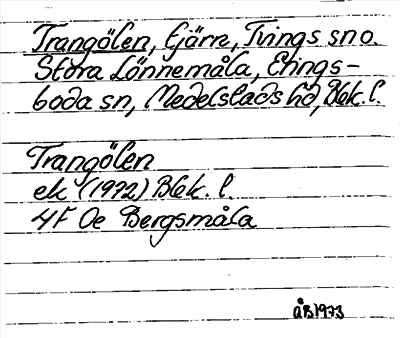 Trangölen, tjärn, Tvings sn o.
Stora Lönnemåla, Erings-
boda sn, Medelstads hd, Blek. l.
Trangölen
ek (1972) Blek. l.
4F 0e Bergsmåla
ÅB 1973